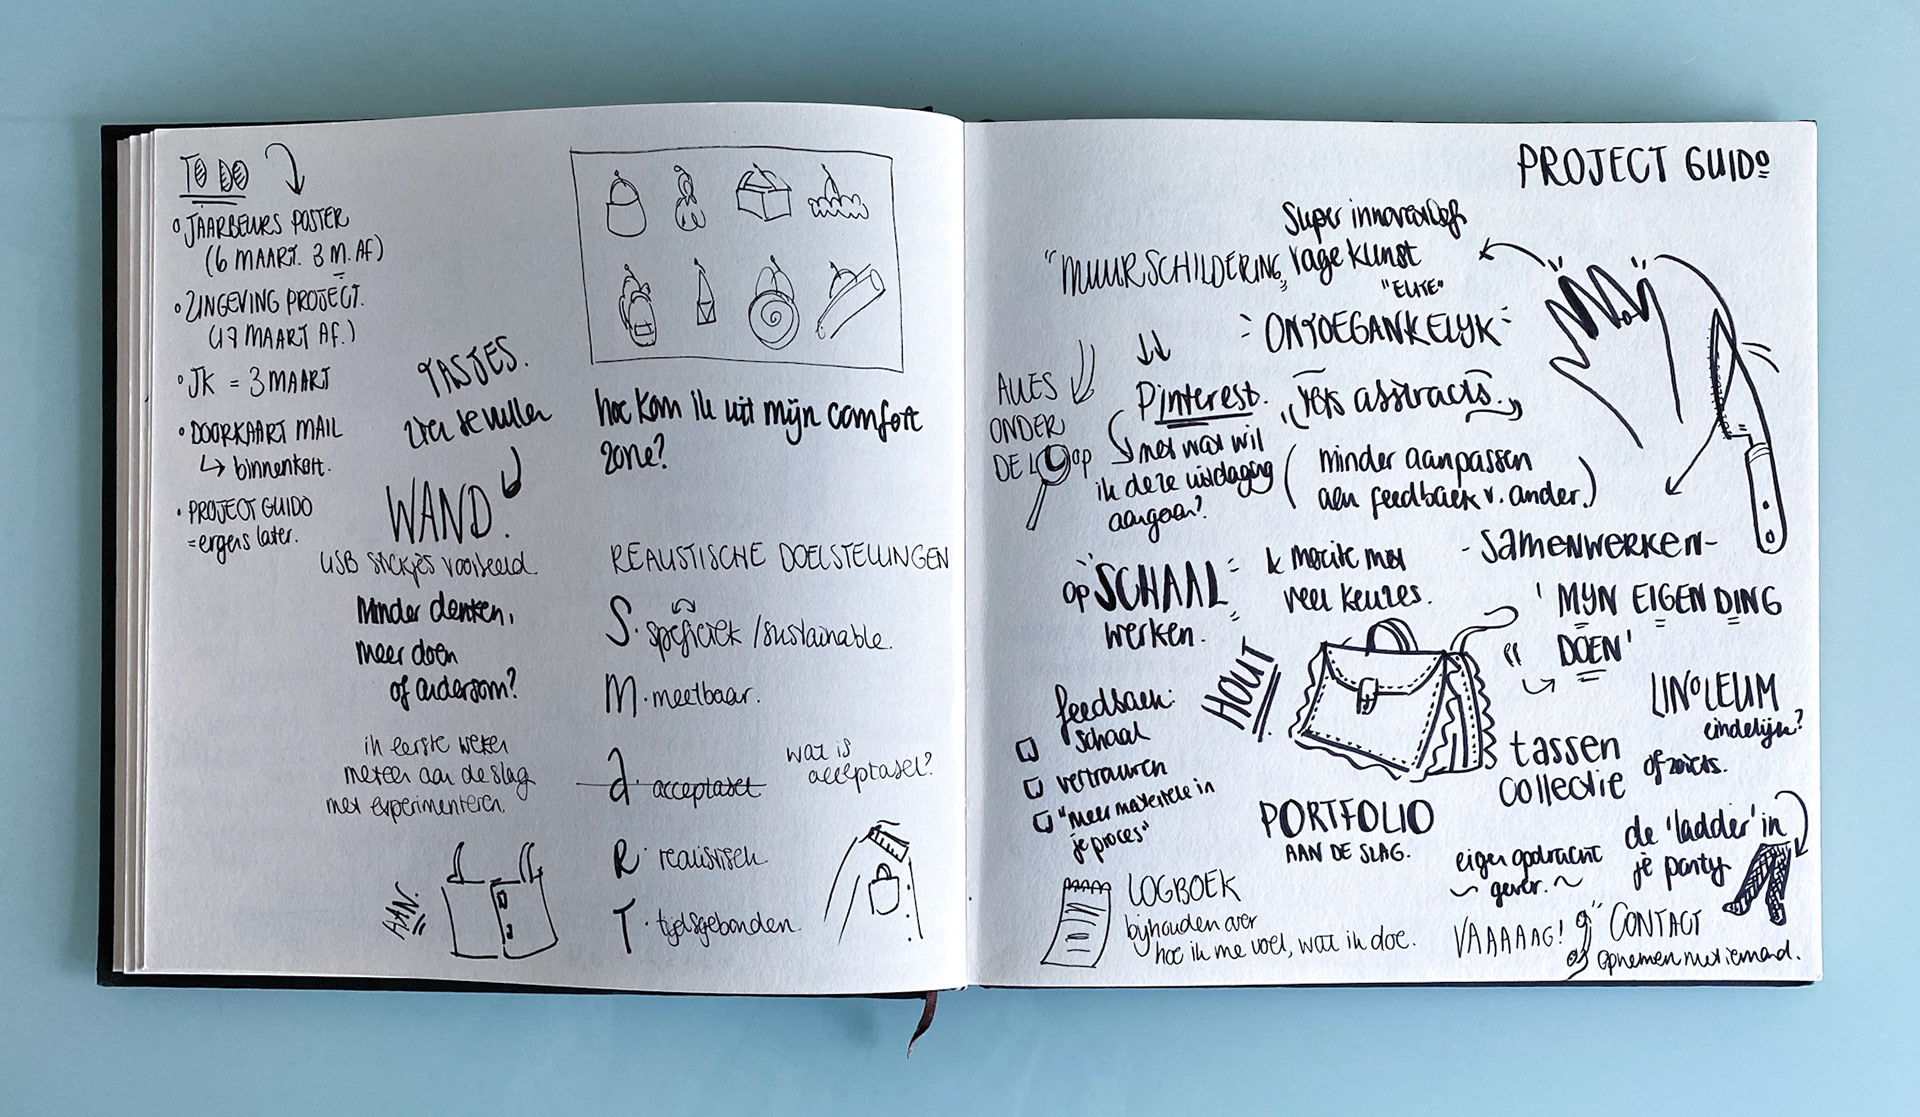 TO DO
JAARBEURS POSTER
(6 MAART. 3 M. AF)
ZINGEVING PROJECT.
(17 MAART AF.)
JK = 3 MAART
DOORKAART MAIL
binnenkort.
PROJECT GUIDO
= ergens later.
TASJES.
WAND.
USB stickjes voorbeeld.
Minder denken,
meer doen
of andersom?
in eerste weken
meteen aan de slag
met experimenteren.
AAN.
hoe kom ik uit mijn comfort
zone?
REALISTISCHE DOELSTELLINGEN
S. specifiek / sustainable.
M. meetbaar.
A. acceptabel
wat is
acceptabel?
R. realistisch
T. tijdsgebonden.
PROJECT GUIDO
Super innoverend
"MUURSCHILDERING" vage kunst
"ELITE"
ONTOEGANKELIJK
ALLES
ONDER
DE LOEP
Pinterest.
met wat wil
ik deze uitdaging
aangaan?
"iets abstracts."
(minder aanpassen
aan feedback v. ander.)
- SAMENWERKEN -
op SCHAAL
werken.
ik moeite met
veel keuzes.
'MIJN EIGEN DING
DOEN'
HOUT
feedback:
schaal
vertrouwen
"meer materiele in
je proces"
LINOLEUM
eindelijk?
of zoiets.
tassen
collectie
PORTFOLIO
AAN DE SLAG.
eigen opdracht
gever.
de 'ladder' in
je panty
LOGBOEK
bijhouden over
hoe ik me voel, wat ik doe.
VAAAAAG!
CONTACT
opnemen met iemand.